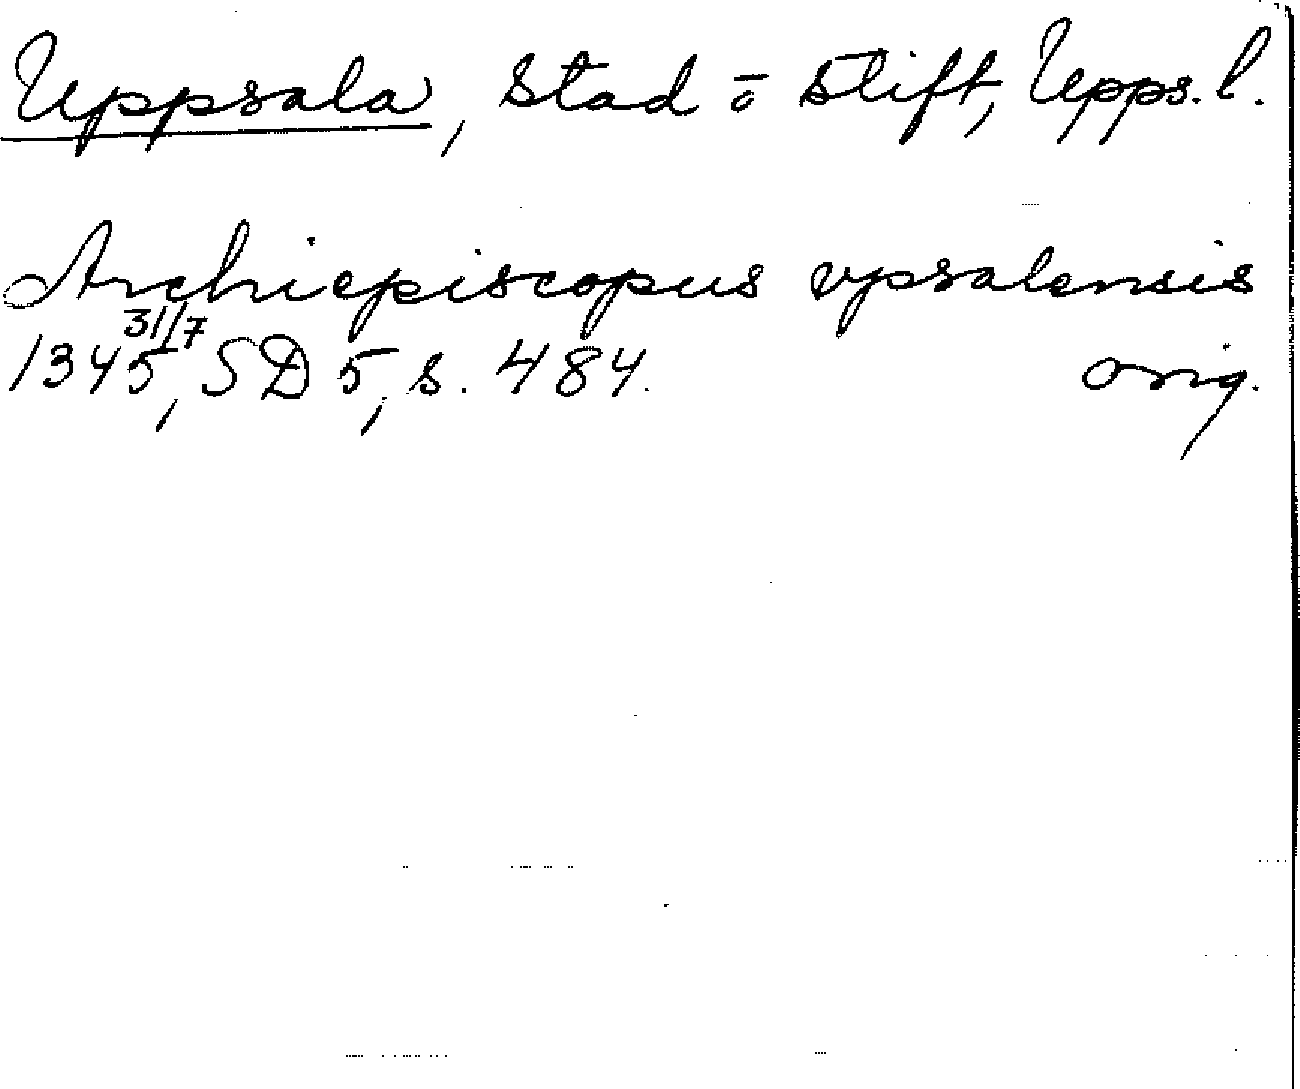 Uppsala, stad o stift, Upps. l.
Archiepiscopus vpsalensis
1345 31/7, SD 5, s. 484. orig.